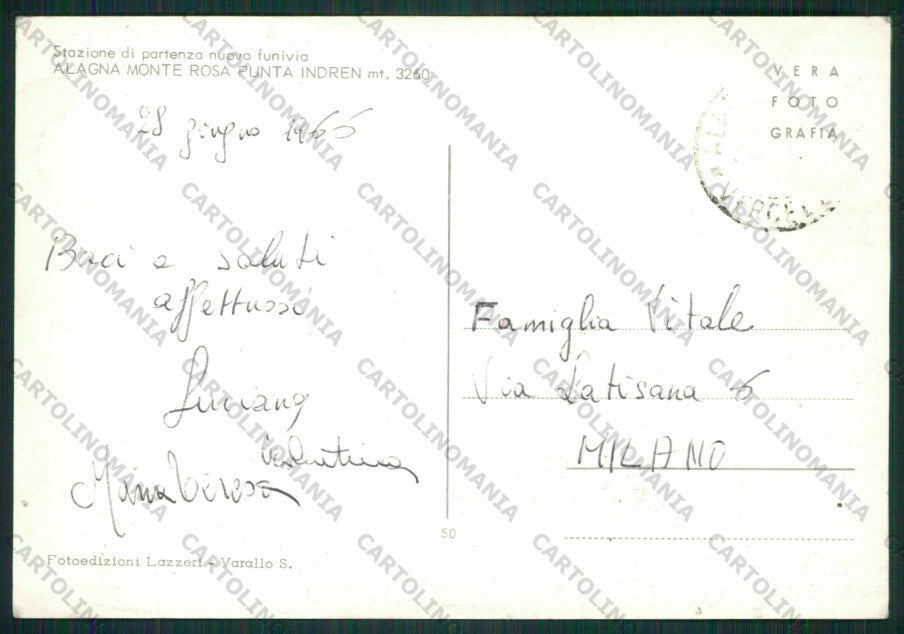 Stazione di partenza nuova funivia
ALAGNA MONTE ROSA PUNTA INDREN mt. 3260
VERA
FOTO
GRAFIA
28 giugno 1966
Baci e saluti
affettuosi
Luciano
Valentina
Maria Teresa
Famiglia Vitale
Via Latisana 6
MILANO
50
Fotoedizioni Lazzeri - Varallo S.
CARTOLINOMANIA